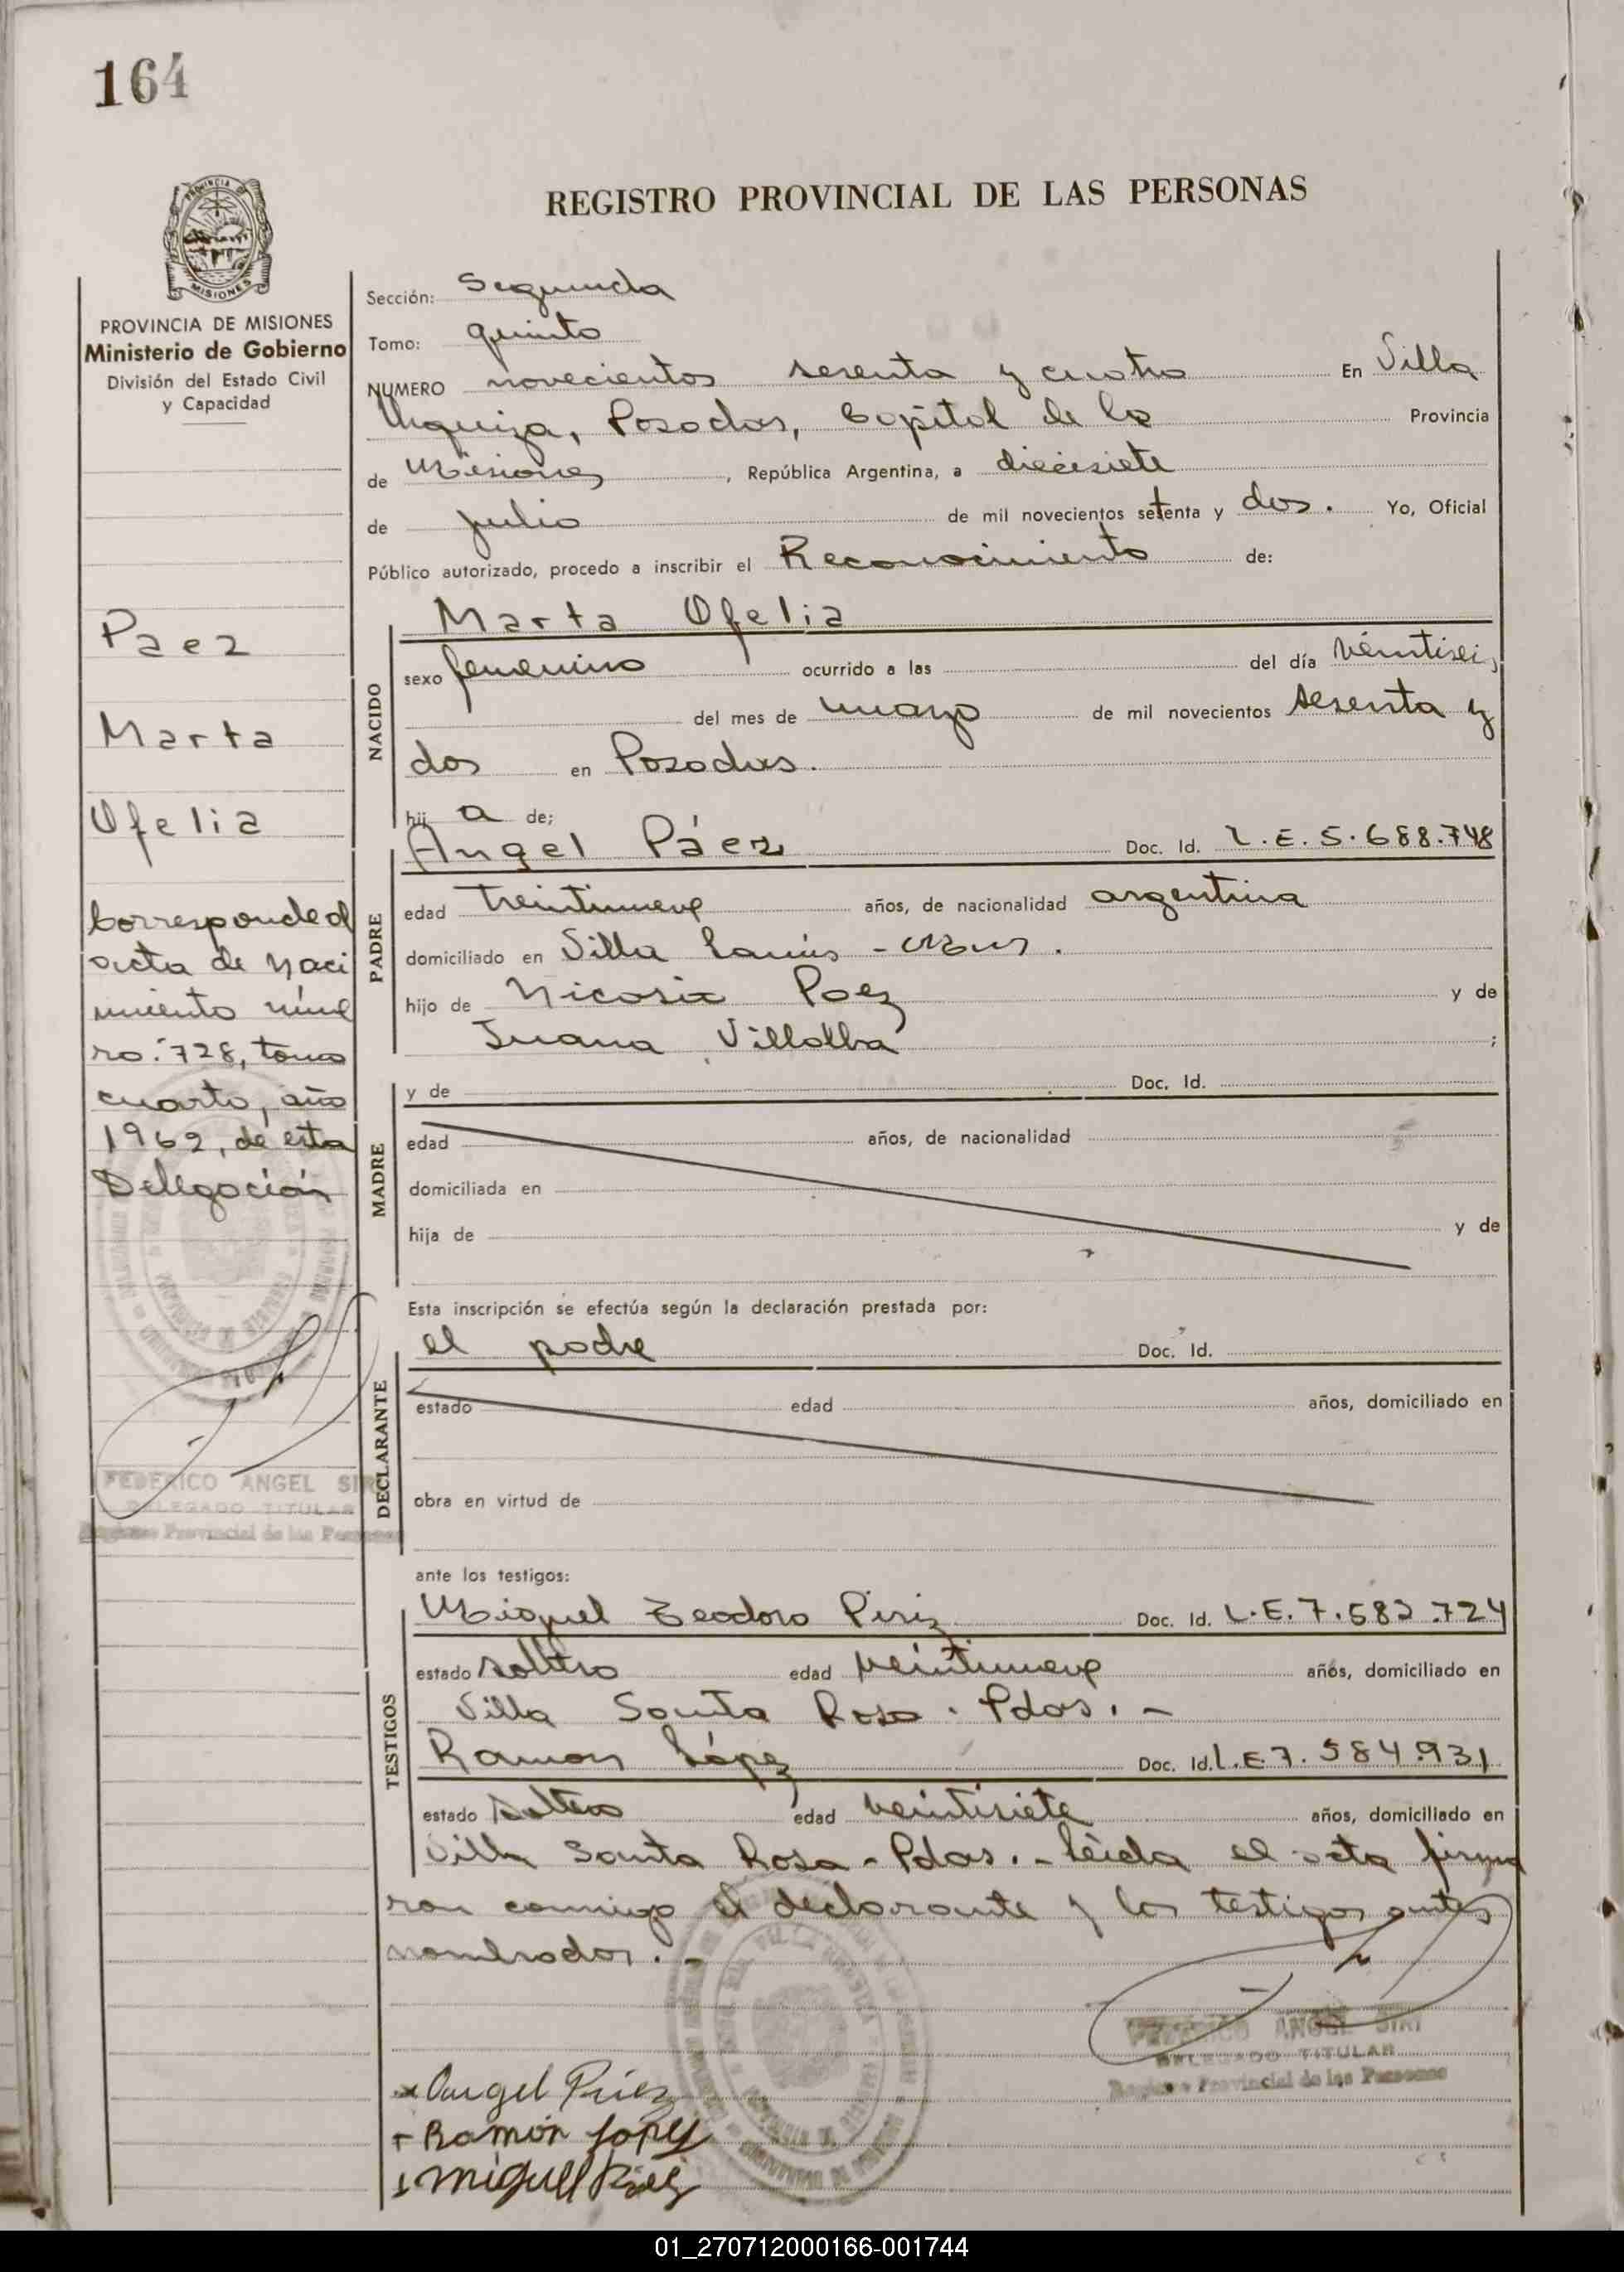 164
REGISTRO PROVINCIAL DE LAS PERSONAS
PROVINCIA DE MISIONES
Ministerio de Gobierno
División del Estado Civil
y Capacidad
Paez
Marta
Ofelia
Corresponde al
acta de naci
miento núme
ro: 728, tomo
cuarto, año
1962, de esta
Delegación
FEDERICO ANGEL SIRI
DELEGADO TITULAR
Registro Provincial de las Personas
Sección: Segunda
Tomo: quinto
NUMERO novecientos sesenta y cuatro En Villa
Urquiza, Posadas, Capital de la Provincia
de Misiones, República Argentina, a diecisiete
de julio de mil novecientos setenta y dos. Yo, Oficial
Público autorizado, procedo a inscribir el Reconocimiento de:
Marta Ofelia
NACIDO
sexo femenino ocurrido a las del día veintiseis
del mes de marzo de mil novecientos sesenta y
dos en Posadas.
hij a de:
PADRE
Angel Páez Doc. Id. L.E. 5.688.748
edad treintinueve años, de nacionalidad argentina
domiciliado en Villa Lanús -
hijo de Nicasio Paez y de
Juana Villalba ;
MADRE
y de Doc. Id.
edad años, de nacionalidad
domiciliada en
hija de y de
Esta inscripción se efectúa según la declaración prestada por:
DECLARANTE
el padre Doc. Id.
estado edad años, domiciliado en
obra en virtud de
ante los testigos:
TESTIGOS
Miguel Teodoro Piriz Doc. Id. L.E. 7.583.724
estado soltero edad veintinueve años, domiciliado en
Villa Santa Rosa. Pdas. -
Ramon López Doc. Id. L.E 7.584.931
estado soltero edad veintisiete años, domiciliado en
Villa Santa Rosa - Pdas. - Leída el acta firma
ron conmigo el declarante y los testigos antes
nombrados. -
FEDERICO ANGEL SIRI
DELEGADO TITULAR
Registro Provincial de las Personas
Angel Páez
Ramón Lopez
Miguel Piriz
01_270712000166-001744